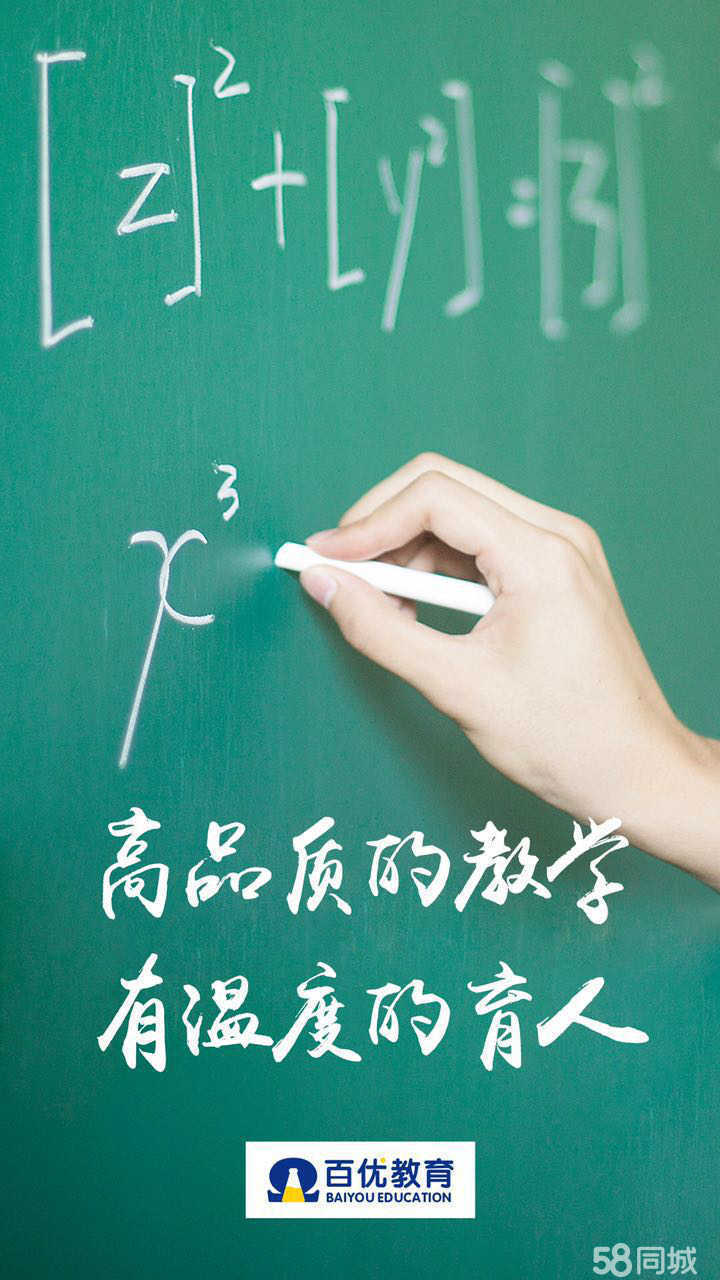 [z]²+[y²]=[3]²
x³
高品质的教学
有温度的育人
百优教育
BAIYOU EDUCATION
58同城